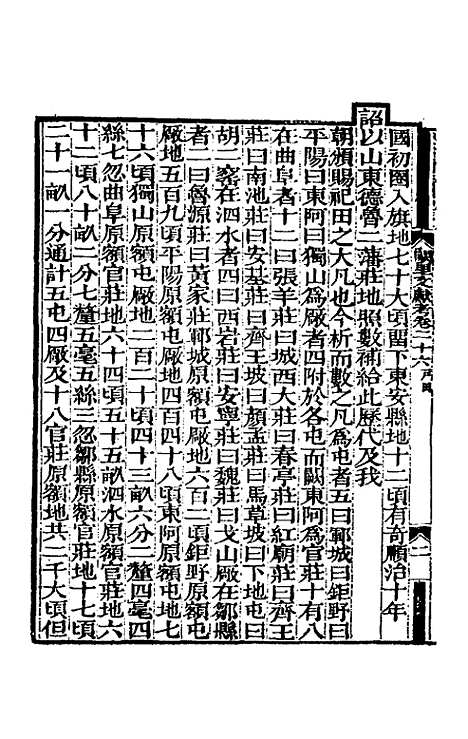 國初圈入旗地七十大頃留下東安縣地十二頃有奇順治十年
詔以山東德魯二藩莊地照數補給此歷代及我
朝頒賜祀田之大凡也今析而數之凡為屯者五曰鄆城曰鉅野曰
平陽曰東阿曰獨山為廠者四附於各屯而闕東阿為官莊十有八
在曲阜者十二曰張羊莊曰城西大莊曰春亭莊曰紅廟莊曰齊王
莊曰南池莊曰安基莊曰齊王坡曰顏孟莊曰馬草坡曰下地屯曰
胡二窑在泗水者四曰西岩莊曰安寧莊曰魏莊曰戈山廠在鄒縣
者二曰魯源莊曰黃家莊鄆城原額屯廠地六百二頃鉅野原額屯
廠地五百九頃平陽原額屯廠地四百四十八頃東阿原額屯地七
十六頃獨山原額屯廠地二百二十頃四十三畝六分二釐四毫四
絲七忽曲阜原額官莊地六十四頃五十五畝泗水原額官莊地六
十二頃八十畝一分七釐五毫五絲三忽鄒縣原額官莊地十七頃
二十一畝一分通計五屯四廠及十八官莊原額地共二千大頃但
闕里文獻考卷二十六
二